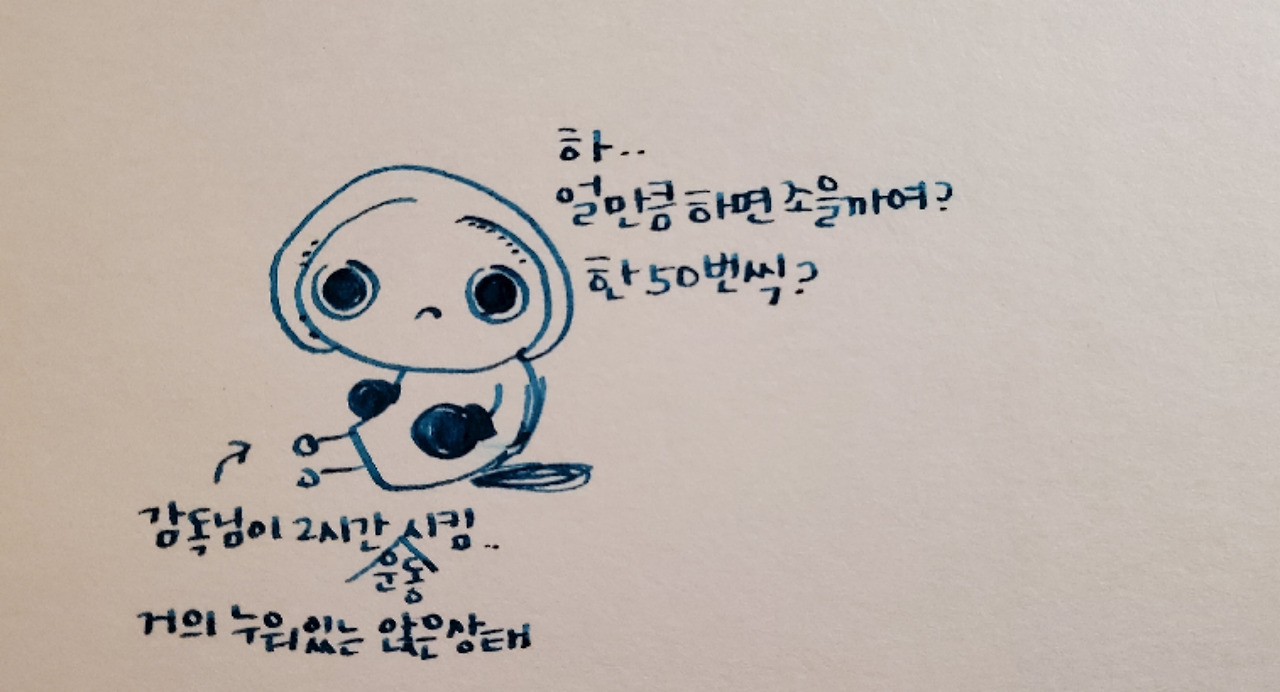 하..
얼만큼 하면 소을까여?
한 50번씩?
감독님이 2시간 시킴..
운동
거의 누워있는 앉은상태